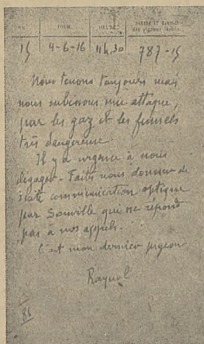 JOUR HEURE
15 4-6-16 11h,30 787-15
Nous tenons toujours mais
nous subissons une attaque,
par les gaz et les fumées
très dangereuse
Il y a urgence à nous
dégager - Faites nous donner de
suite communication optique
par Souville qui ne répond
pas à nos appels.
C'est mon dernier pigeon
Raynal